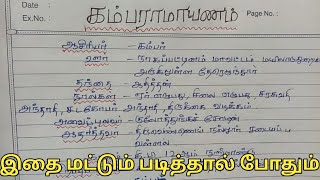 Date :
Ex.No :
Page No. :
கம்பராமாயணம்
ஆசிரியர் - கம்பர்
ஊர் - நாகப்பட்டினம் மாவட்டம் மயிலாடுதுறை
அருகிலுள்ள தேரெழுந்தூர்
தந்தை - ஆதித்தன்
நூல்கள் - ஏர் எழுபது, சிலை எழுபது, சரசுவதி
அந்தாதி, சடகோபர் அந்தாதி, திருக்கை வழக்கம்
அவைப்புலவர் - குலோத்துங்கச் சோழன்
ஆதரித்தவர் - திருவெண்ணெய் நல்லூர் சடையப்ப
வள்ளல்
இதை மட்டும் படித்தால் போதும்